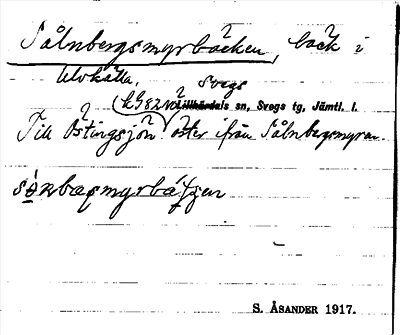 Sålnbergsmyrbäcken, bäck i
Ulvkälla, Svegs
Lillhärdals sn, Svegs tg, Jämtl. l.
Till Östingsjön öster ifrån Sålnbergsmyren.
S. ÅSANDER 1917.